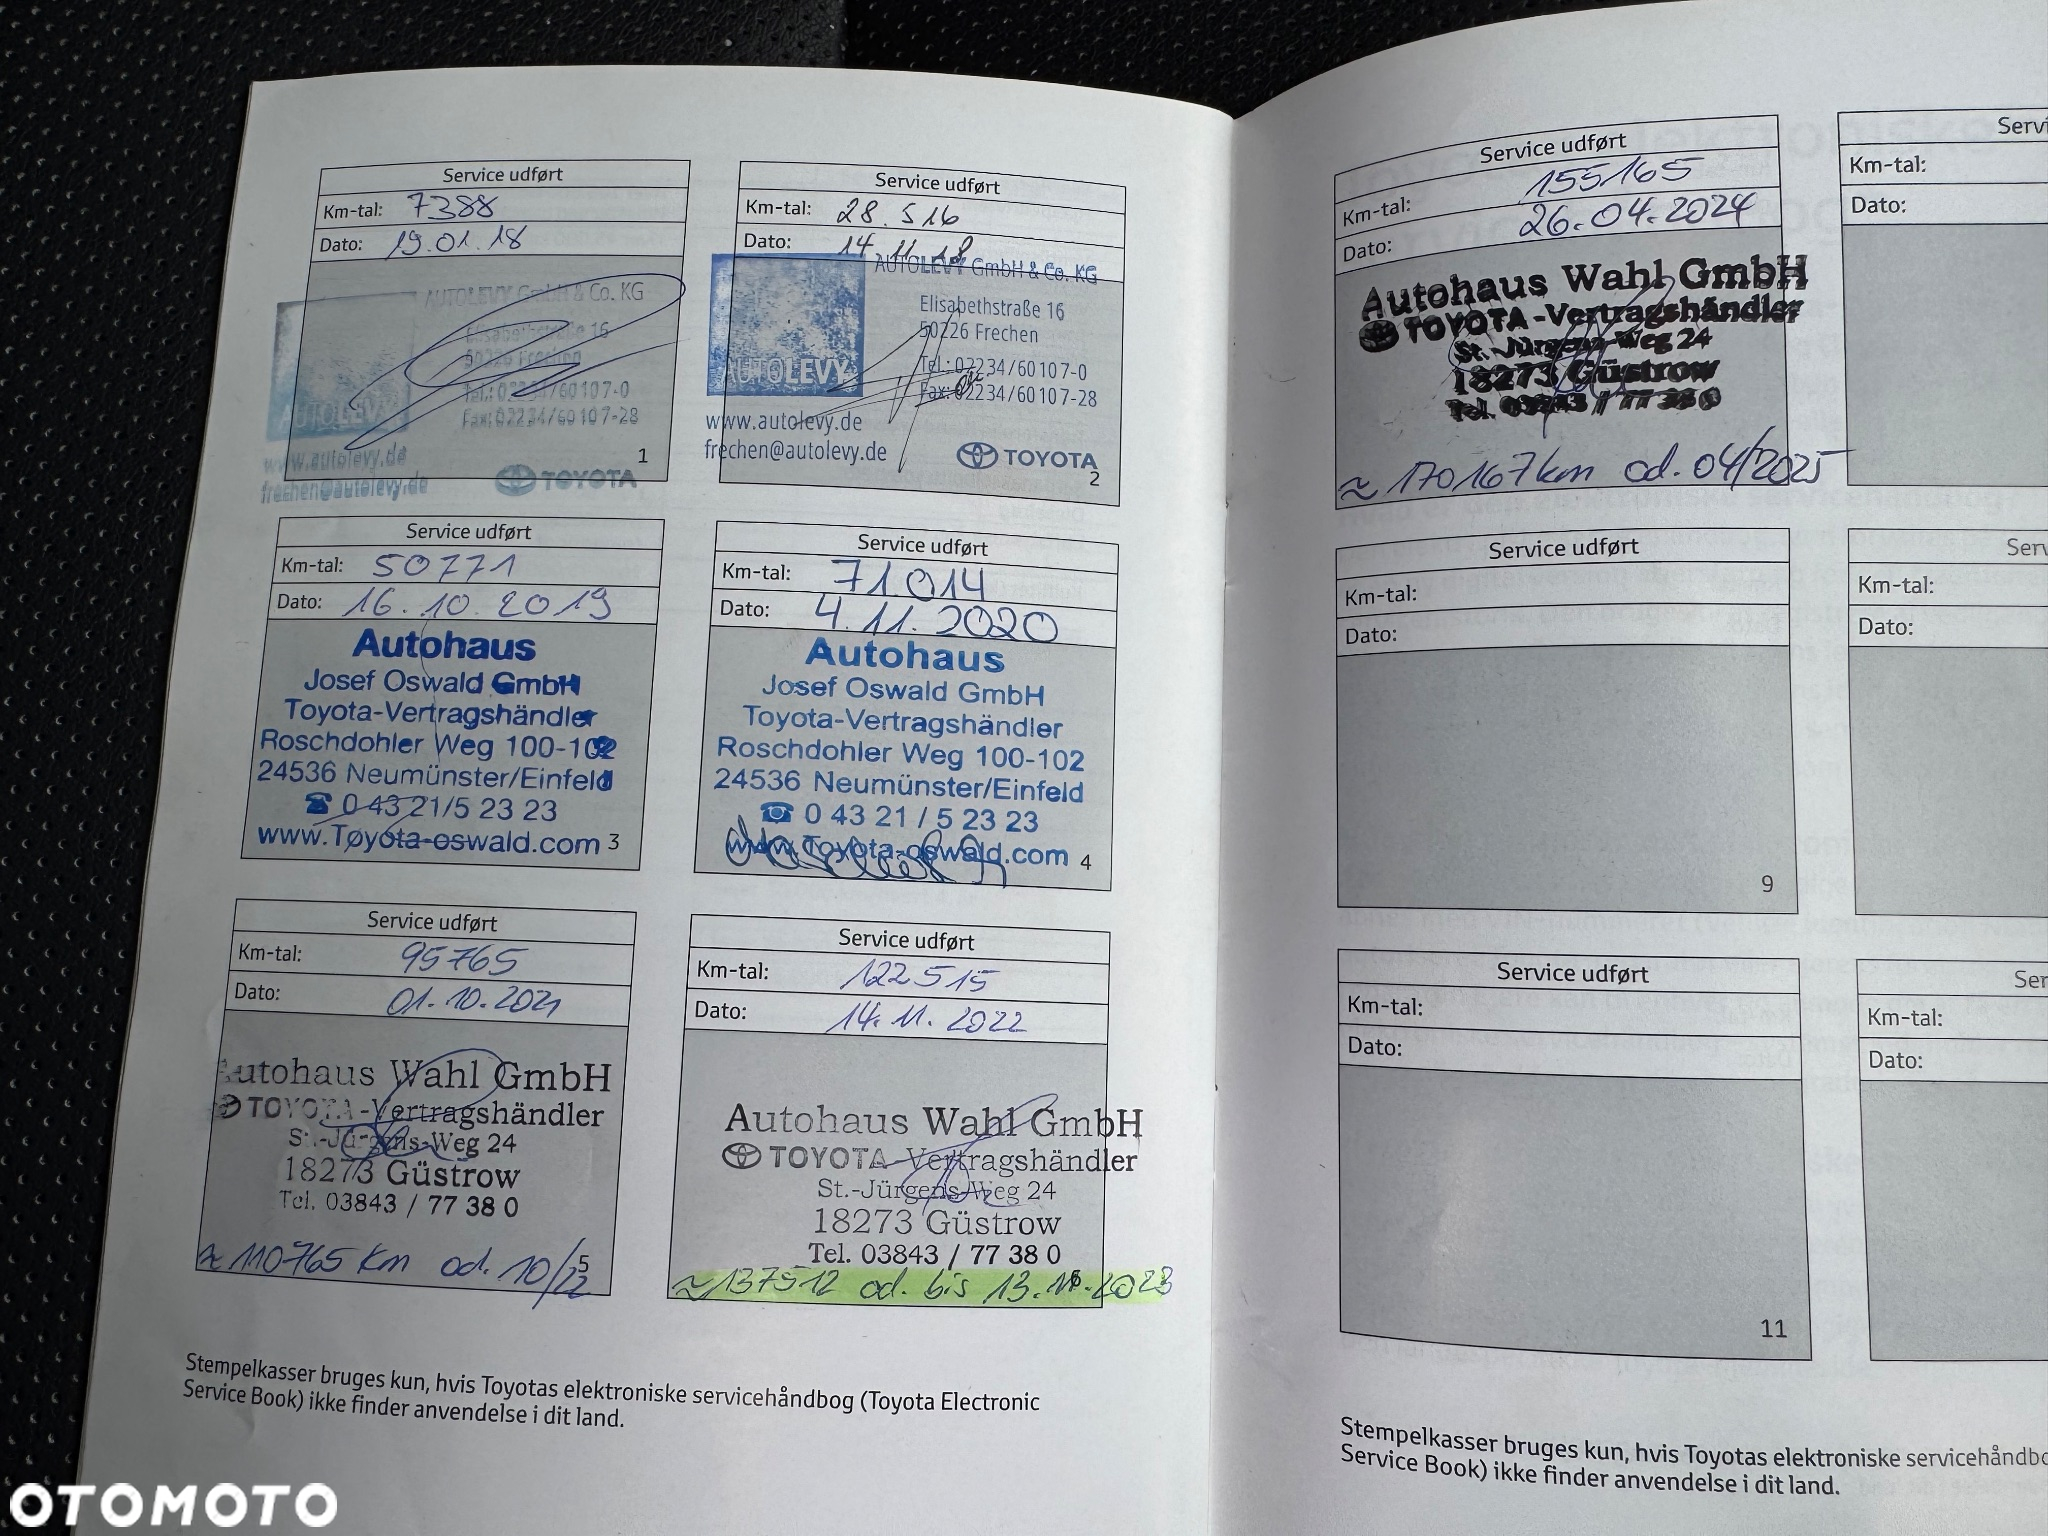 Service udført
Km-tal: 7388
Dato: 19.01.18
AUTOLEVY GmbH & Co. KG
Elisabethstraße 16
50226 Frechen
Tel.: 02234/60107-0
Fax: 02234/60107-28
AUTOLEVY
www.autolevy.de
frechen@autolevy.de
TOYOTA
1
Service udført
Km-tal: 28.516
Dato: 14.11.18
AUTOLEVY GmbH & Co. KG
Elisabethstraße 16
50226 Frechen
Tel.: 02234/60107-0
Fax: 02234/60107-28
AUTOLEVY
www.autolevy.de
frechen@autolevy.de
TOYOTA
2
Service udført
Km-tal: 50771
Dato: 16.10.2019
Autohaus
Josef Oswald GmbH
Toyota-Vertragshändler
Roschdohler Weg 100-102
24536 Neumünster/Einfeld
☎ 0 43 21/5 23 23
www.Toyota-oswald.com 3
Service udført
Km-tal: 71.014
Dato: 4.11.2020
Autohaus
Josef Oswald GmbH
Toyota-Vertragshändler
Roschdohler Weg 100-102
24536 Neumünster/Einfeld
☎ 0 43 21 / 5 23 23
www.Toyota-oswald.com 4
Service udført
Km-tal: 95765
Dato: 01.10.2021
Autohaus Wahl GmbH
TOYOTA-Vertragshändler
St.-Jürgens-Weg 24
18273 Güstrow
Tel. 03843 / 77 38 0
5
≈ 110765 km od. 10/22
Service udført
Km-tal: 122515
Dato: 14.11.2022
Autohaus Wahl GmbH
TOYOTA-Vertragshändler
St.-Jürgens-Weg 24
18273 Güstrow
Tel. 03843 / 77 38 0
6
≈ 137512 od. bis 13.11.2023
Stempelkasser bruges kun, hvis Toyotas elektroniske servicehåndbog (Toyota Electronic
Service Book) ikke finder anvendelse i dit land.
Service udført
Km-tal: 155165
Dato: 26.04.2024
Autohaus Wahl GmbH
TOYOTA-Vertragshändler
St.-Jürgens-Weg 24
18273 Güstrow
Tel. 03843 / 77 38 0
≈ 170167 km od. 04/2025
Servi
Km-tal:
Dato:
Service udført
Km-tal:
Dato:
9
Serv
Km-tal:
Dato:
Service udført
Km-tal:
Dato:
11
Ser
Km-tal:
Dato:
Stempelkasser bruges kun, hvis Toyotas elektroniske servicehåndbo
Service Book) ikke finder anvendelse i dit land.
OTOMOTO